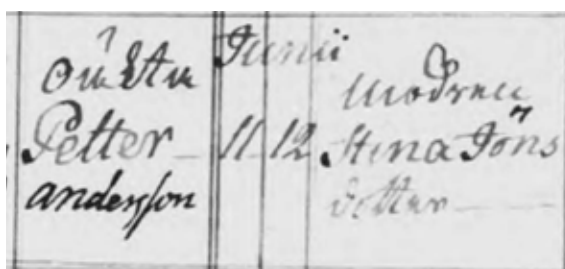 Oäkta
Petter
andersson
Junii
11 12
Modren
Stina Jöns
dotter